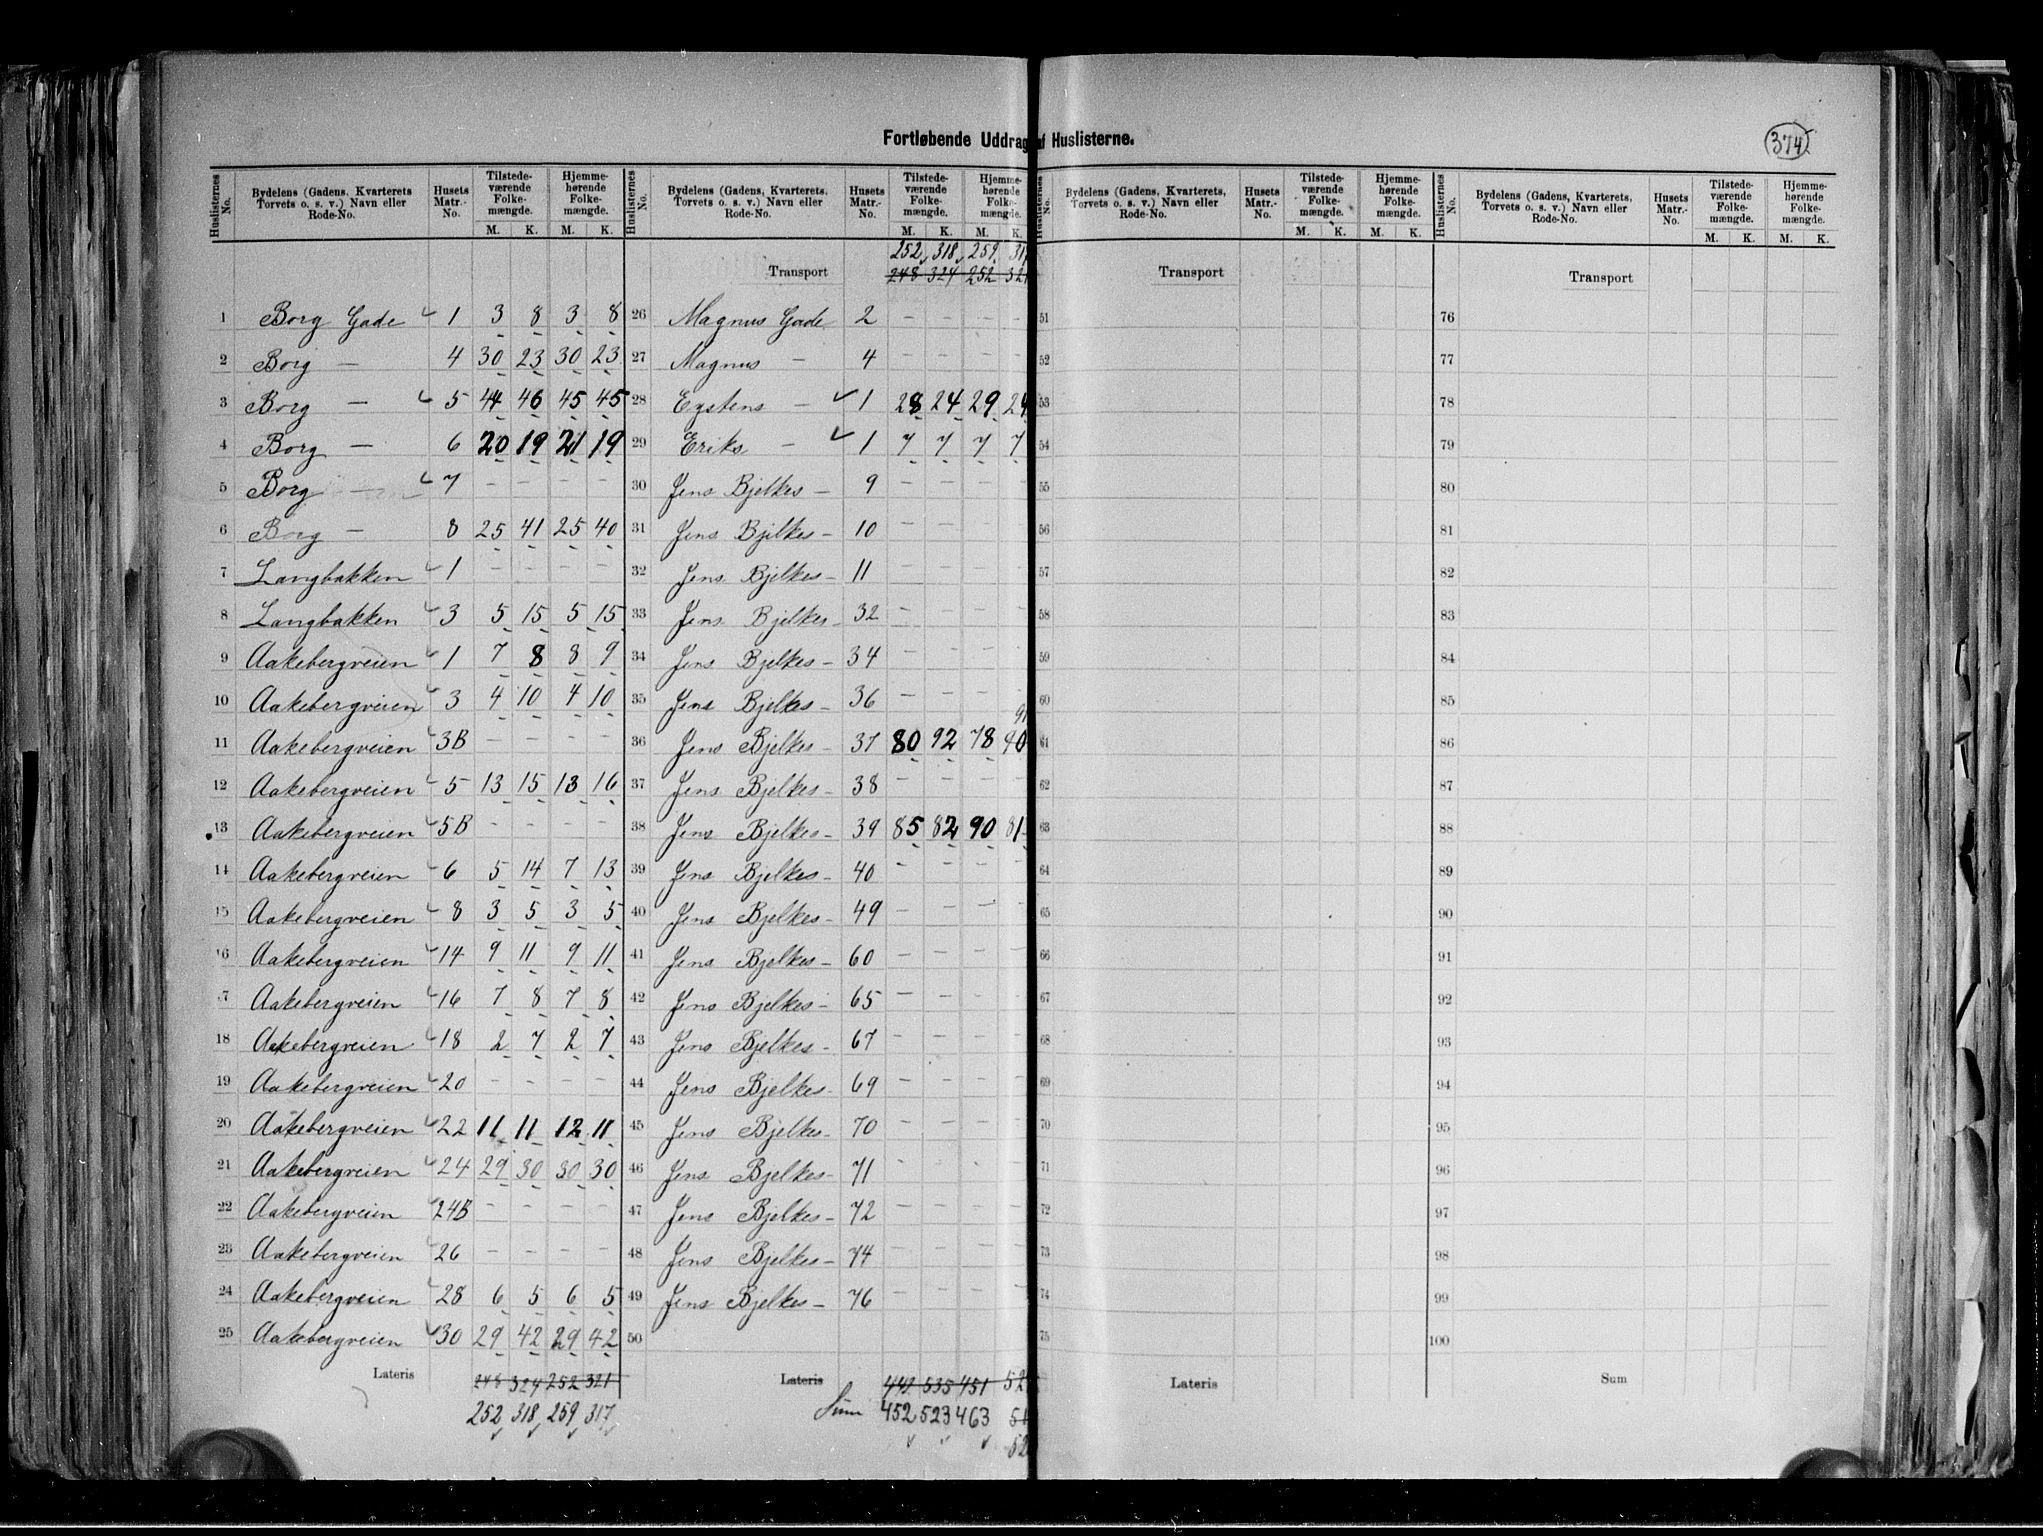 Fortløbende Uddrag af Huslisterne.
374
Huslisternes No. Bydelens (Gadens, Kvarterets Torvets o. s. v.) Navn eller Rode-No. Husets Matr.-No. Tilstedeværende Folkemængde. M. K. Hjemmehørende Folkemængde. M. K.
1 Borg Gade 1 3 8 3 8
2 Borg — 4 30 23 30 23
3 Borg — 5 44 46 45 45
4 Borg — 6 20 19 21 19
5 Borg — 7 – – – –
6 Borg — 8 25 41 25 40
7 Langbakken 1 – – – –
8 Langbakken 3 5 15 5 15
9 Aakebergveien 1 7 8 8 9
10 Aakebergveien 3 4 10 4 10
11 Aakebergveien 3B – – – –
12 Aakebergveien 5 13 15 13 16
13 Aakebergveien 5B – – – –
14 Aakebergveien 6 5 14 7 13
15 Aakebergveien 8 3 5 3 5
16 Aakebergveien 14 9 11 9 11
17 Aakebergveien 16 7 8 7 8
18 Aakebergveien 18 2 7 2 7
19 Aakebergveien 20 – – – –
20 Aakebergveien 22 11 11 12 11
21 Aakebergveien 24 29 30 30 30
22 Aakebergveien 24B – – – –
23 Aakebergveien 26 – – – –
24 Aakebergveien 28 6 5 6 5
25 Aakebergveien 30 29 42 29 42
Lateris 248 324 252 321
252 318 259 317
Huslisternes No. Bydelens (Gadens, Kvarterets, Torvets o. s. v.) Navn eller Rode-No. Husets Matr.-No. Tilstedeværende Folkemængde. M. K. Hjemmehørende Folkemængde. M. K.
252 318 259 317
Transport 248 324 252 321
26 Magnus Gade 2 – – – –
27 Magnus — 4 – – – –
28 Eystens — 1 28 24 29 24
29 Eriks — 1 7 7 7 7
30 Jens Bjelkes — 9 – – –
31 Jens Bjelkes — 10 – – –
32 Jens Bjelkes — 11 – – –
33 Jens Bjelkes — 32 – – –
34 Jens Bjelkes — 34 – – –
35 Jens Bjelkes — 36 – – –
91
36 Jens Bjelkes — 37 80 92 78 90
37 Jens Bjelkes — 38 – – – –
38 Jens Bjelkes — 39 85 82 90 81
39 Jens Bjelkes — 40 – – – –
40 Jens Bjelkes — 49 – – – –
41 Jens Bjelkes — 60 – – – –
42 Jens Bjelkes — 65 – – – –
43 Jens Bjelkes — 67 – – – –
44 Jens Bjelkes — 69 – – – –
45 Jens Bjelkes — 70 – – – –
46 Jens Bjelkes — 71 – – – –
47 Jens Bjelkes — 72 – – – –
48 Jens Bjelkes — 74 – – – –
49 Jens Bjelkes — 76 – – – –
50
Lateris 442 535 451 52
Sum 452 523 463 51
52
Huslisternes No. Bydelens (Gadens, Kvarterets, Torvets o. s. v.) Navn eller Rode-No. Husets Matr.-No. Tilstedeværende Folkemængde. M. K. Hjemmehørende Folkemængde. M. K.
Transport
51
52
53
54
55
56
57
58
59
60
61
62
63
64
65
66
67
68
69
70
71
72
73
74
75
Lateris
Huslisternes No. Bydelens (Gadens, Kvarterets, Torvets o. s. v.) Navn eller Rode-No. Husets Matr.-No. Tilstedeværende Folkemængde. M. K. Hjemmehørende Folkemængde. M. K.
Transport
76
77
78
79
80
81
82
83
84
85
86
87
88
89
90
91
92
93
94
95
96
97
98
99
100
Sum